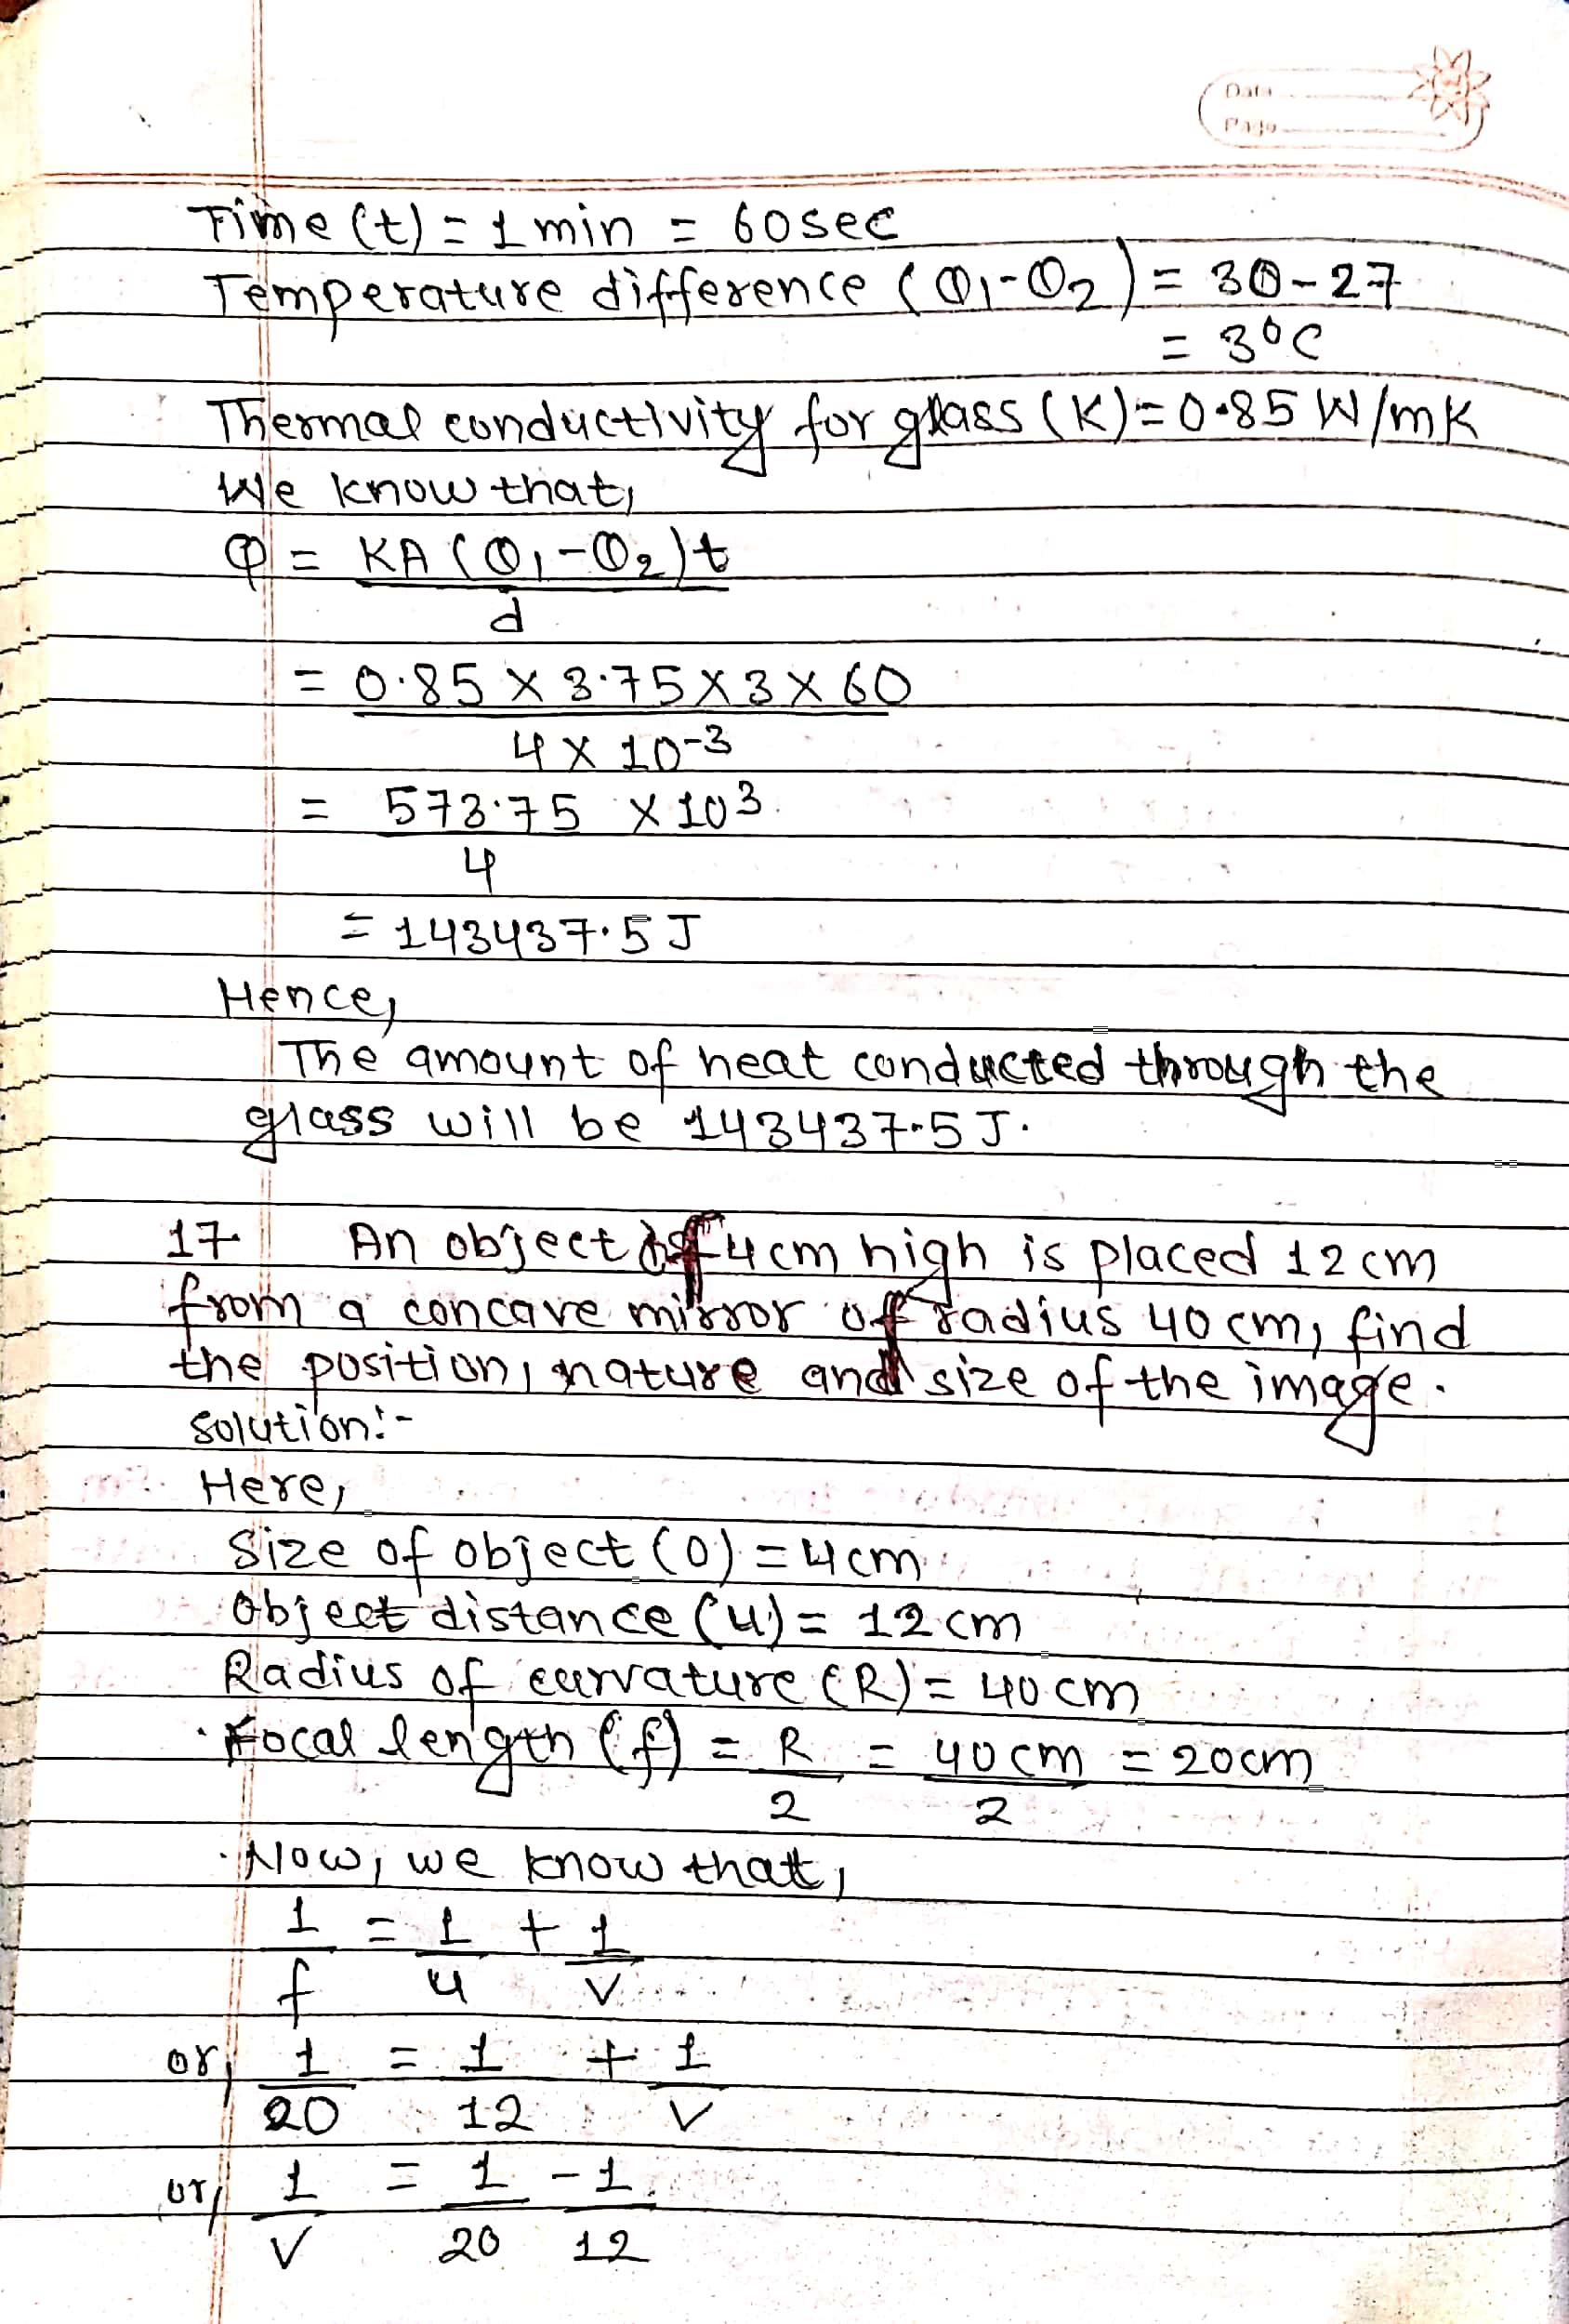 Data
Page
Time (t) = 1 min = 60sec
Temperature difference (θ1-θ2) = 30-27
= 3°C
Thermal conductivity for glass (K) = 0.85 W/mK
We know that,
Q = KA (θ1-θ2)t
d
= 0.85 X 3.75 X 3 X 60
4 X 10-3
= 573.75 X 103
4
= 143437.5 J
Hence,
The amount of heat conducted through the
glass will be 143437.5 J.
17. An object of 4cm high is placed 12 cm
from a concave mirror of radius 40 cm, find
the position, nature and size of the image.
solution:-
Here,
Size of object (O) = 4cm
Object distance (u) = 12 cm
Radius of curvature (R) = 40 cm
Focal length (f) = R = 40 cm = 20cm
2 2
Now, we know that,
1 = 1 + 1
f u v
or, 1 = 1 + 1
20 12 v
or, 1 = 1 - 1
v 20 12